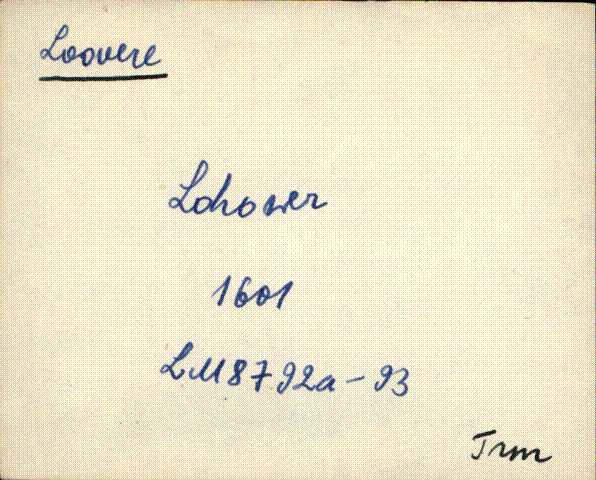 Loovere
Lohower
1601
LM8792a-93
Trm